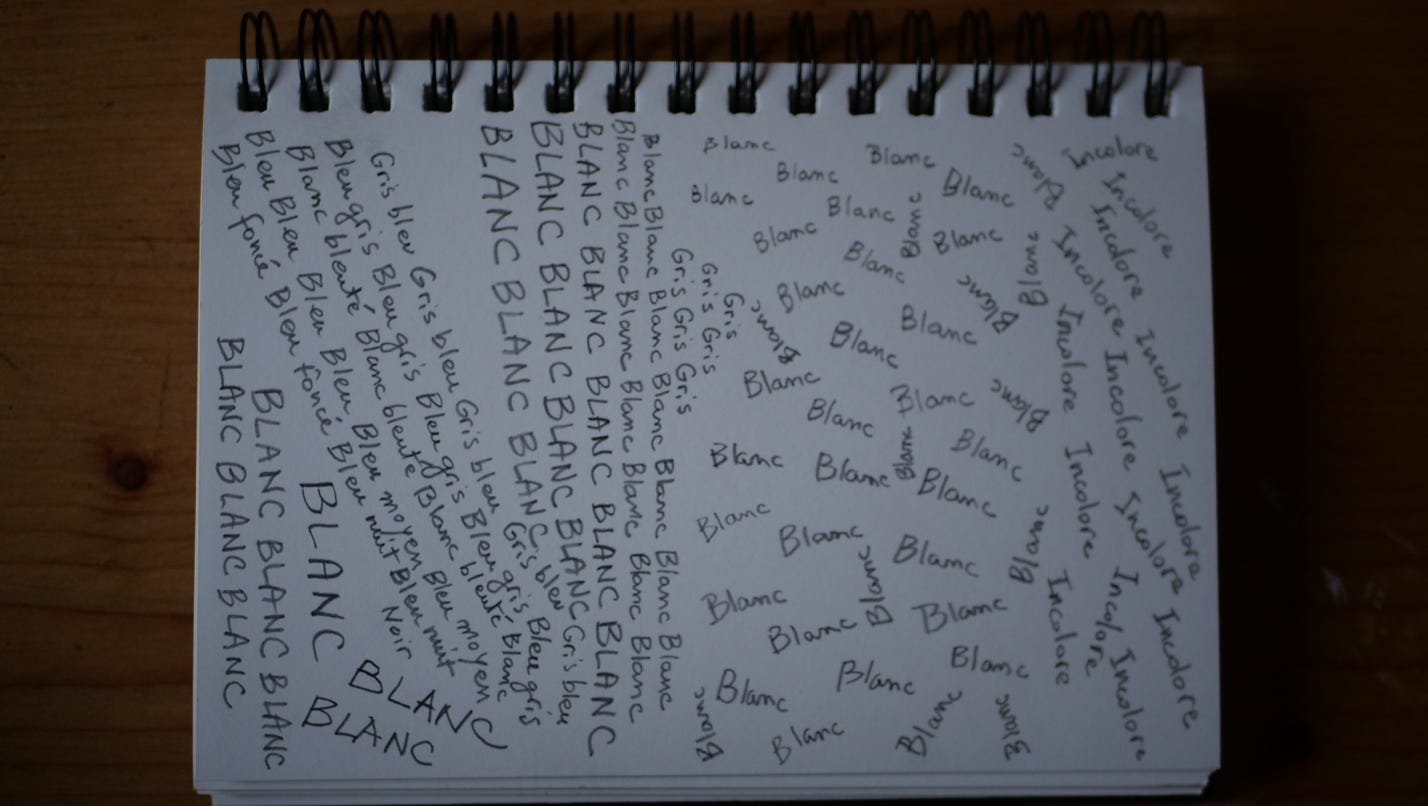 Incolore Incolore Incolore Incolore Incolore
Incolore Incolore Incolore Incolore
Incolore Incolore Incolore Incolore Incolore
Blanc Blanc Blanc Blanc Blanc Blanc
Blanc Blanc Blanc Blanc Blanc Blanc Blanc
Blanc Blanc Blanc Blanc Blanc Blanc Blanc
Blanc Blanc Blanc Blanc Blanc Blanc Blanc
Blanc Blanc Blanc Blanc Blanc Blanc Blanc
Blanc Blanc Blanc Blanc Blanc Blanc Blanc
Gris
Gris Gris
Gris Gris Gris
Blanc Blanc Blanc Blanc Blanc Blanc Blanc Blanc
Blanc Blanc Blanc Blanc Blanc Blanc Blanc Blanc
BLANC BLANC BLANC BLANC BLANC
BLANC BLANC BLANC BLANC
BLANC BLANC BLANC
Gris bleu Gris bleu Gris bleu Gris bleu Gris bleu
Bleu gris Bleu gris Bleu gris Bleu gris Bleu gris
Blanc bleuté Blanc bleuté Blanc bleuté Blanc
Bleu Bleu Bleu Bleu Bleu moyen Bleu moyen
Bleu foncé Bleu foncé Bleu nuit Bleu nuit
Noir
BLANC
BLANC
BLANC
BLANC BLANC BLANC
BLANC BLANC BLANC